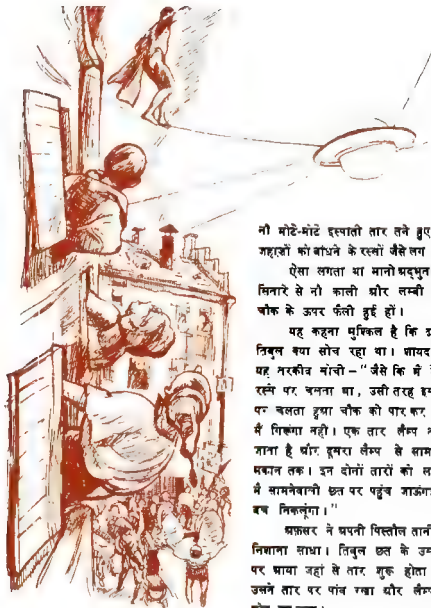 नौ मोटे-मोटे इस्पाती तार तने हुए
जहाज़ों को बांधने के रस्सों जैसे लग
ऐसा लगता था मानो अद्भुत
सितारे से नौ काली और लम्बी
चौक के ऊपर फैली हुई हों।
यह कहना मुश्किल है कि
तिबुल क्या सोच रहा था। शायद
यह तरकीब सोची – "जैसे कि मैं
रस्से पर चलता था, उसी तरह
पर चलता हुआ चौक को पार कर
मैं गिरूंगा नहीं। एक तार लैम्प
जाता है और दूसरा लैम्प से साम
मकान तक। इन दोनों तारों को
मैं सामनेवाली छत पर पहुंच जाऊंगा
बच निकलूंगा।"
अफ़सर ने अपनी पिस्तौल तानी
निशाना साधा। तिबुल छत के उस
पर आया जहां से तार शुरू होता
उसने तार पर पांव रखा और लैम्प